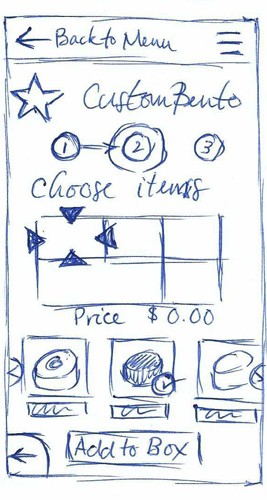 Back to Menu
Custom Bento
1 2 3
Choose items
Price $0.00
Add to Box